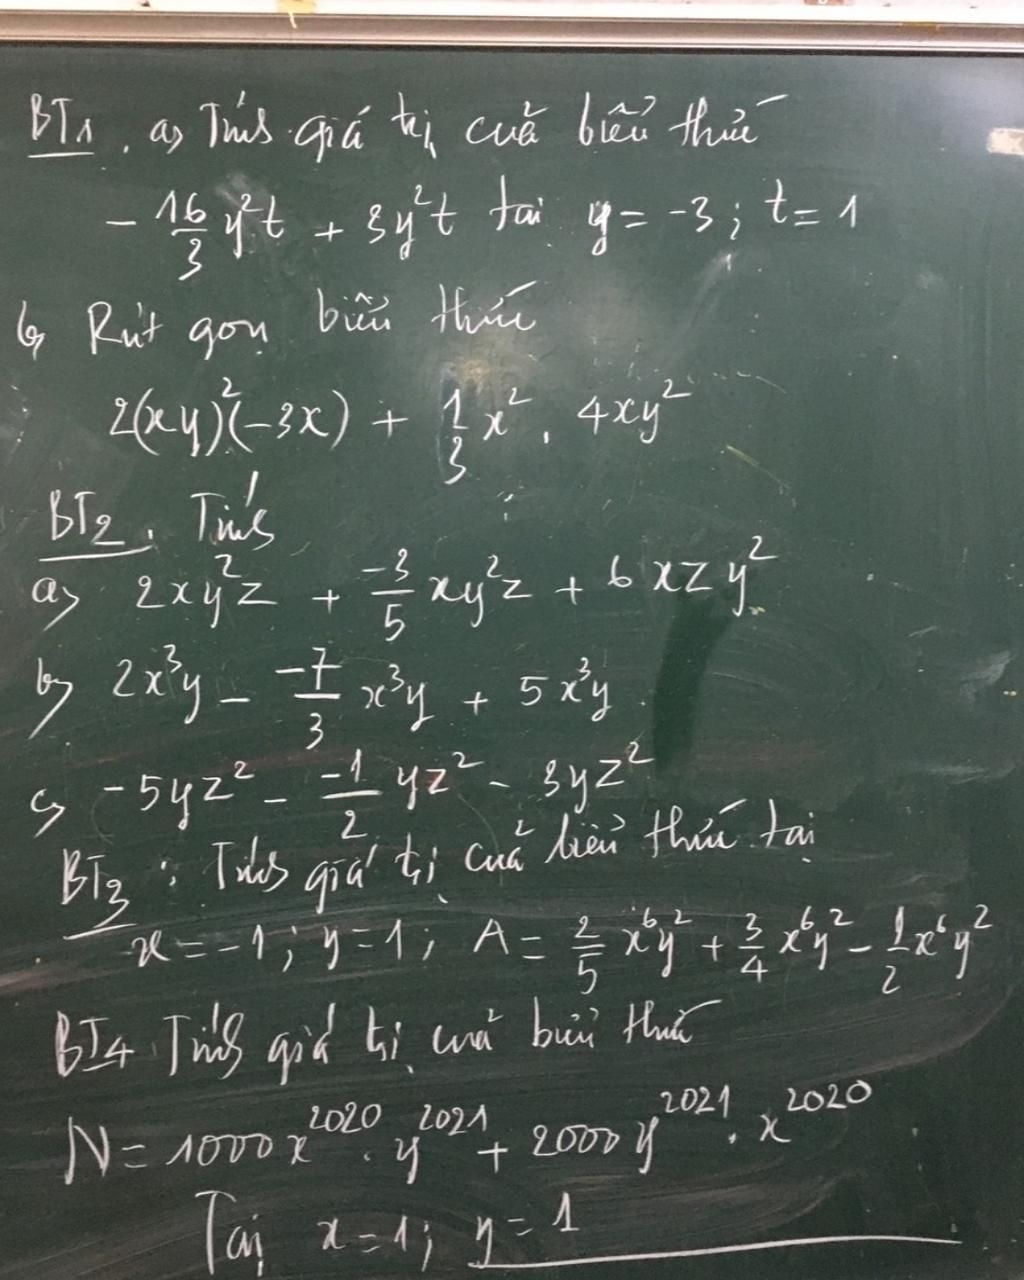 BT1. a) Tính giá trị của biểu thức
- 16/3 y²t + 3y²t tại y = -3; t = 1
b) Rút gọn biểu thức
2(xy)²(-3x) + 1/3 x² . 4xy²
BT2. Tính
a) 2xy²z + -3/5 xy²z + 6xzy²
b) 2x³y - -7/3 x³y + 5x³y
c) -5yz² - -1/2 yz² - 3yz²
BT3: Tính giá trị của biểu thức tại
x = -1; y = 1; A = 2/5 x⁶y² + 3/4 x⁶y² - 1/2 x⁶y²
BT4 Tính giá trị của biểu thức
N = 1000x²⁰²⁰ . y²⁰²¹ + 2000y²⁰²¹ . x²⁰²⁰
Tại x = 1; y = 1